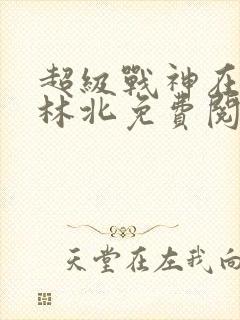 超級戰神在
林北免費閱
天堂在左我向